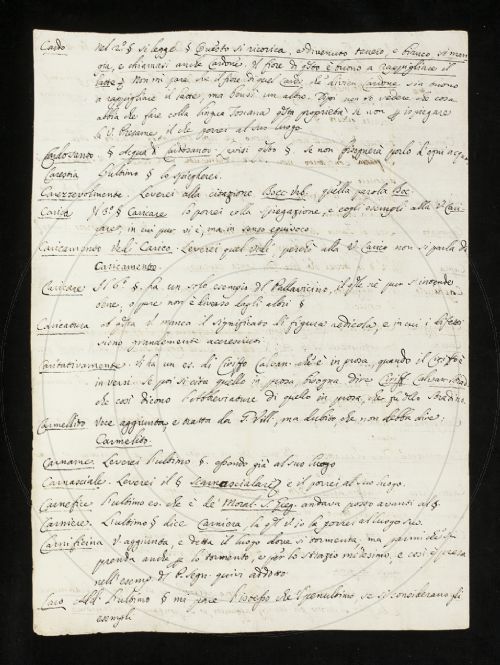 Cardo nel 2.° § si legge § Questo si ricorica, e divenuto tenero, e bianco si man
gia, e chiamasi anche Cardone. Il fiore di esso è buono a rappigliare il
latte. Non mi pare che il fiore di quel Cardo che diviene Cardone sia buono
a rappigliare il latte, ma bensì un altro.
abbia che fare colla lingua Toscana questa proprietà se non per ispiegare
il V. Presame, il che porrei al suo luogo
Cardosanto. § Acqua di Cardosanto. se non bisognerà porlo d'ogni acqua
Carestia l'ultimo § lo spiegherei.
Carezzevolmente. Leverei alla citazione Bocc. Vis. quella parola Boc
Carica Il 3.° § Caricare lo porrei colla spiegazione, e cogli esempli alla V. Cari
care, in cui pur vi è, ma in senso equivoco
Caricamento Vedi Carico. Leverei quel Vedi, perchè alla V. Carico non si parla di
Caricamento.
Caricare Il 6.° §. ha un solo esempio del Pallavicino, il qle nè pur s'intende
bene, oppure non è diverso dagli altri §
Caricatura a questa V. manca il significato di figura ridicola, e in cui i difetti
sieno grandemente accresciuti
Caritativamente. Vi ha un es. di Ciriffo Calvan. che è in prosa, quando il Ciriffo è
in versi. Se poi si cita quello in prosa, bisogna dire Ciriff. Calvan. Strad.
che così dicono l'abbreviature di quello in prosa, che fu dello Stradino.
Carmellito Voce aggiunta, e tratta da F. Vill., ma dubito che non debba dire:
Carmelito.
Carname. Leverei l'ultimo §. essendo già al suo luogo
Carnasciale. Leverei il § Scarnascialare e il porrei al suo luogo.
Carnefice l'ultimo es. che è de' Moral. S. Greg. andava posto avanti al §.
Carniere. L'ultimo § dice Carniera la qle V. io la porrei al luogo suo.
Carnificina V. aggiunta, e detta il luogo dove si tormenta, ma parmi che si
prenda anche per lo tormento, e per lo strazio medesimo, e così è presa
nell'esempio del P. Segn. quivi addotto
Caro Add. l'ultimo § mi pare l'istesso che il penultimo se si considerano gli
esempli